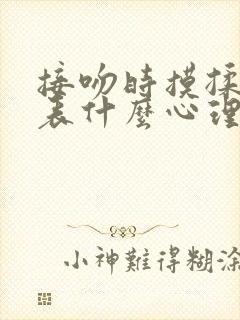 接吻时摸揉
表什麽心理
小神難得糊涂